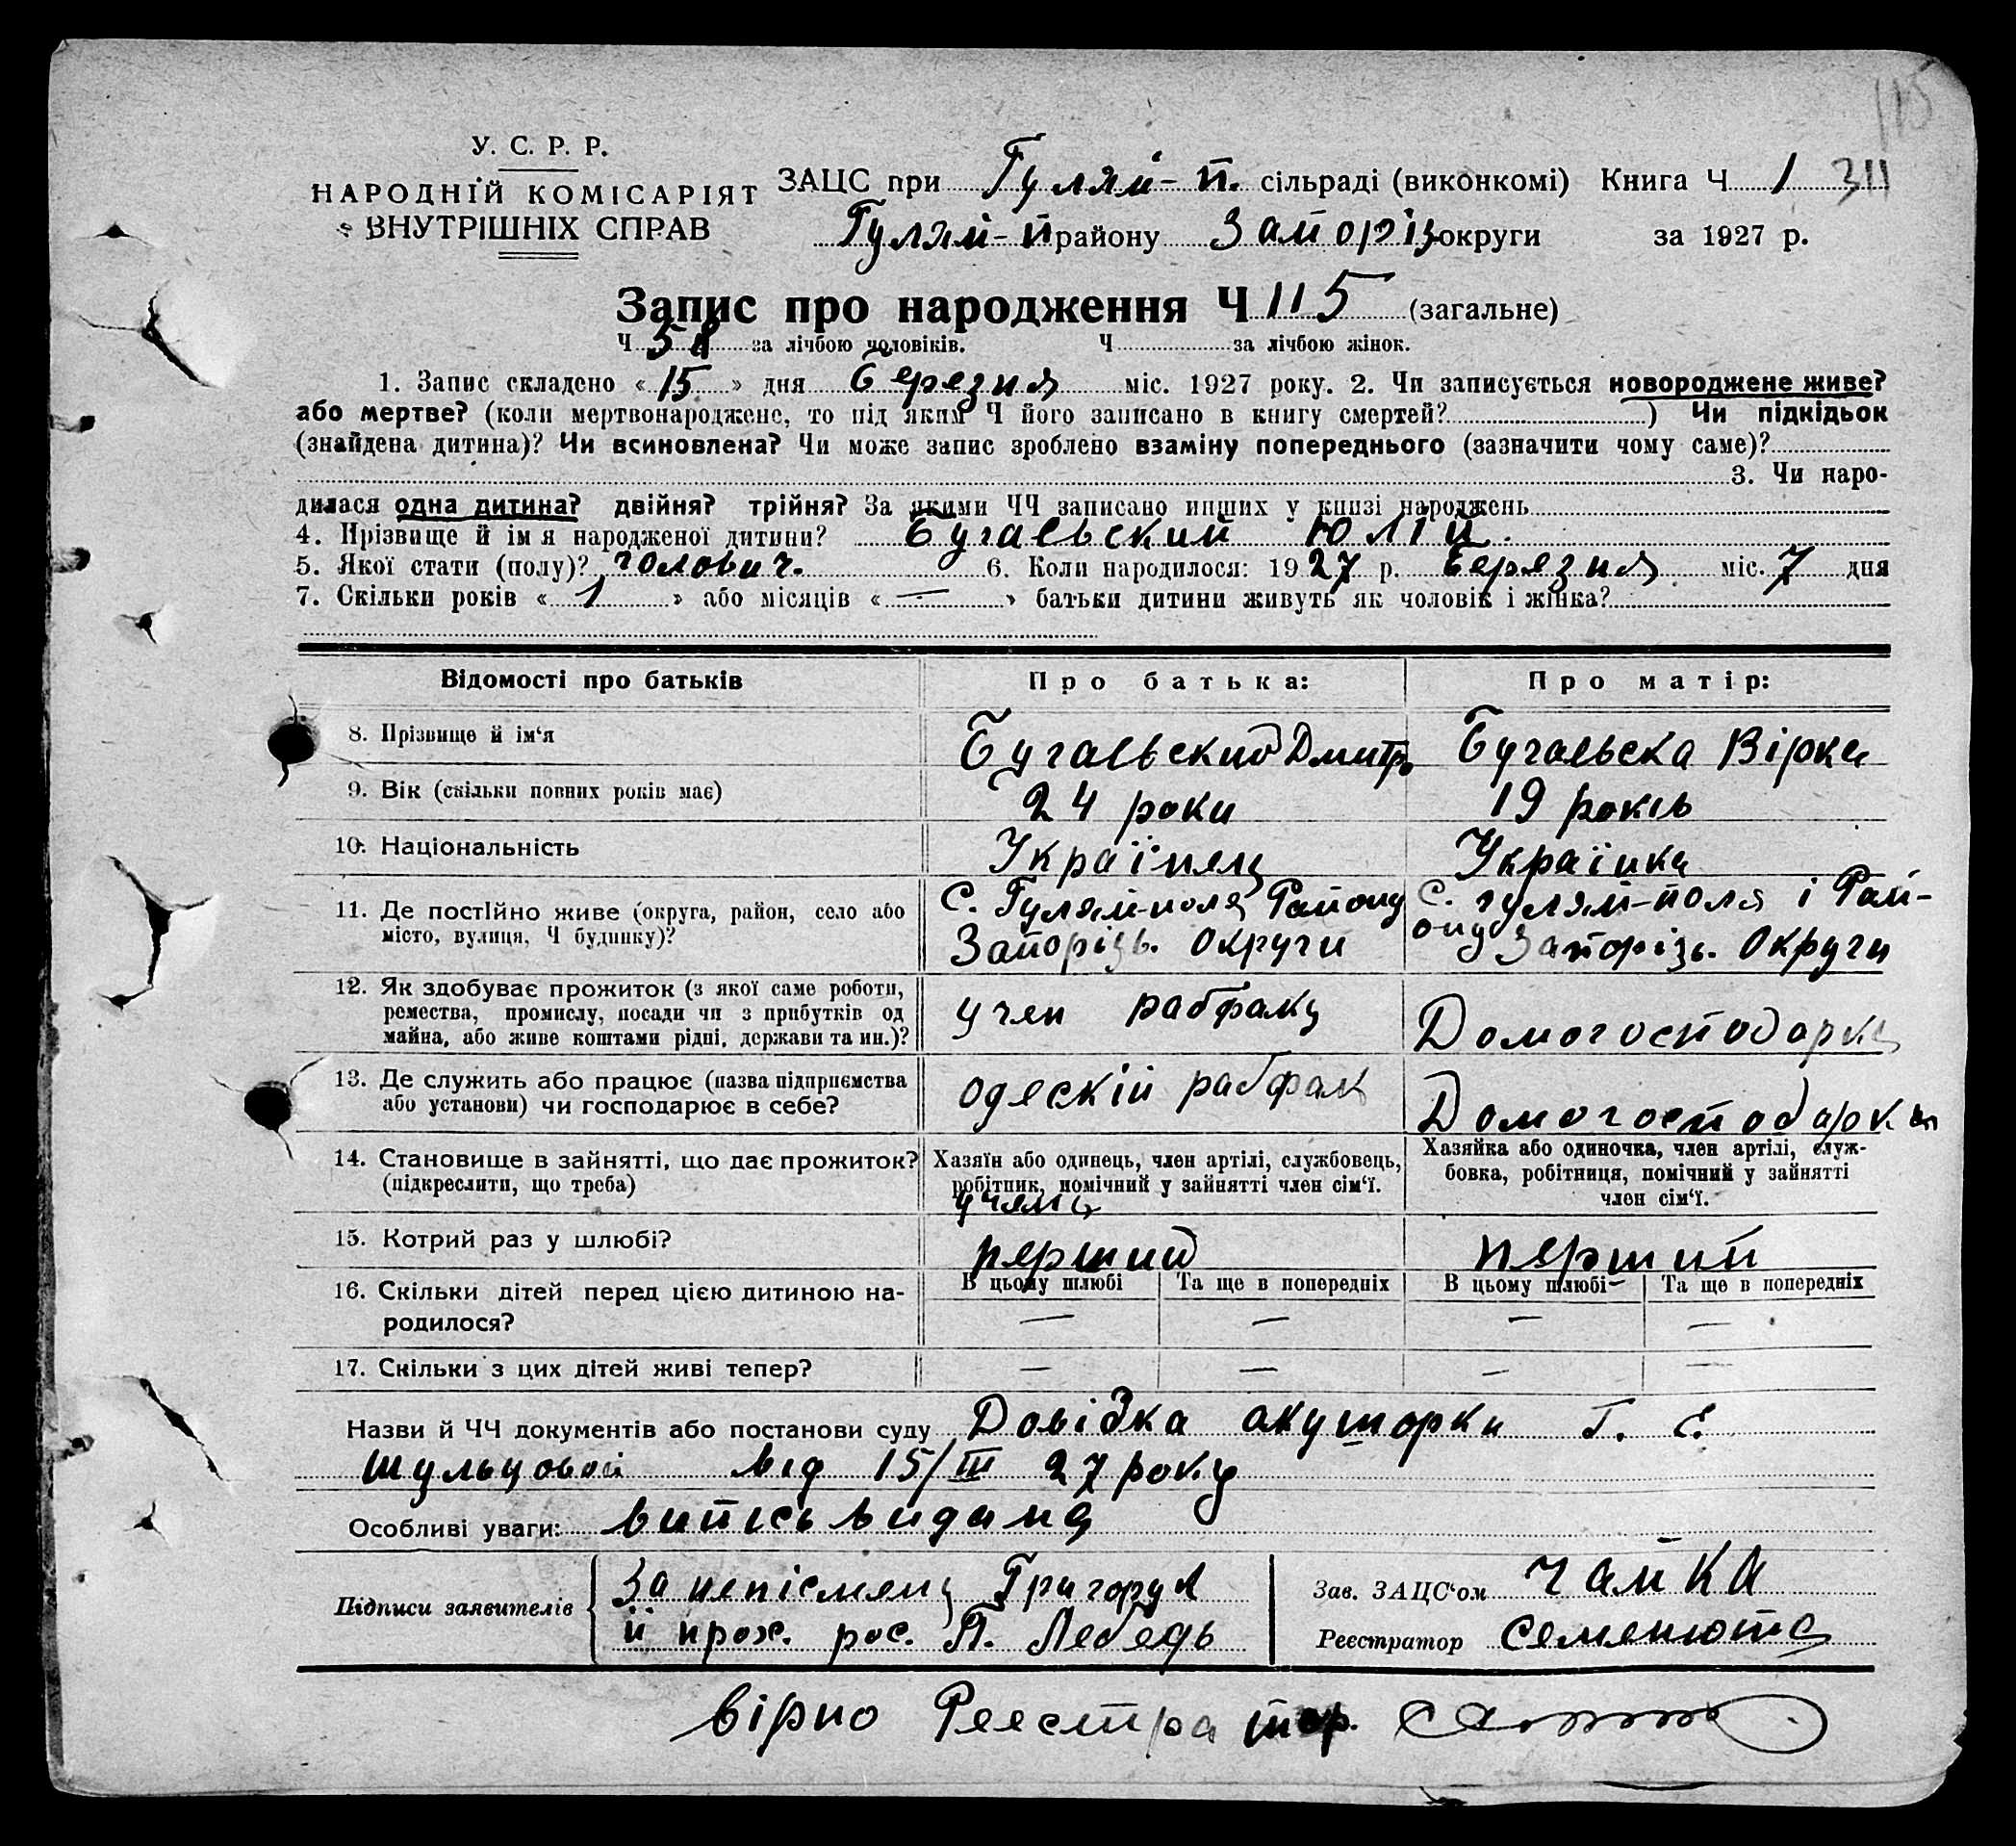 115
У. С. Р. Р.
НАРОДНІЙ КОМІСАРІЯТ
ВНУТРІШНІХ СПРАВ
ЗАЦС при Гуляй-П. сільраді (виконкомі) Книга Ч 1 311
Гуляй-П району Запоріз округи за 1927 р.
Запис про народження Ч 115 (загальне)
Ч 58 за лічбою чоловіків. Ч за лічбою жінок.
1. Запис складено « 15 » дня березня міс. 1927 року. 2. Чи записується новороджене живе?
або мертве? (коли мертвонароджене, то під яким Ч його записано в книгу смертей? ) Чи підкідьок
(знайдена дитина)? Чи всиновлена? Чи може запис зроблено взаміну попереднього (зазначити чому саме)?
3. Чи наро-
дилася одна дитина? двійня? трійня? За якими ЧЧ записано инших у книзі народжень
4. Прізвище й ім я народженої дитини? Бугаьвский Юлій.
5. Якої стати (полу)? чолович. 6. Коли народилося: 1927 р. березня міс. 7 дня
7. Скільки років « 1 » або місяців « — » батьки дитини живуть як чоловік і жінка?
Відомості про батьків Про батька: Про матір:
8. Прізвище й ім‘я Бугаьвский Дмитро Бугаьвска Вірка
9. Вік (скільки повних років має) 24 роки 19 років
10. Національність Українец Українка
11. Де постійно живе (округа, район, село або місто, вулиця, Ч будинку)? С. Гуляй-поля Району Запорізь. округи С. Гуляй-поля і Району Запорізь. Округи
12. Як здобуває прожиток (з якої саме роботи, ремества, промислу, посади чи з прибутків од майна, або живе коштами рідні, держави та ин.)? учен рабфаку Домогосподарка
13. Де служить або працює (назва підприємства або установи) чи господарює в себе? одескій рабфак Домогосподарка
14. Становище в зайнятті, що дає прожиток? (підкреслити, що треба) Хазяїн або одинець, член артілі, службовець, робітник, помічний у зайнятті член сім‘ї. учень Хазяйка або одиночка, член артілі, служ-бовка, робітниця, помічний у зайнятті член сім‘ї.
15. Котрий раз у шлюбі? перший перший
16. Скільки дітей перед цією дитиною на-родилося? В цьому шлюбі — Та ще в попередніх — В цьому шлюбі — Та ще в попередніх —
17. Скільки з цих дітей живі тепер? — — — —
Назви й ЧЧ документів або постанови суду Довідка акушорки Г. Є.
Шульцовой від 15/III 27 року
Особливі уваги: випись видана
Підписи заявителів За неписмен Григорук
й прох. рос. П. Лебедь
Зав. ЗАЦС‘ом Чайка
Реєстратор Семенюта
вірно Реєстратор.